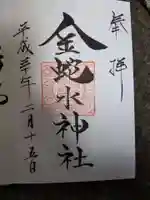 奉拝
金蛇水神社
平成三十年二月十五日